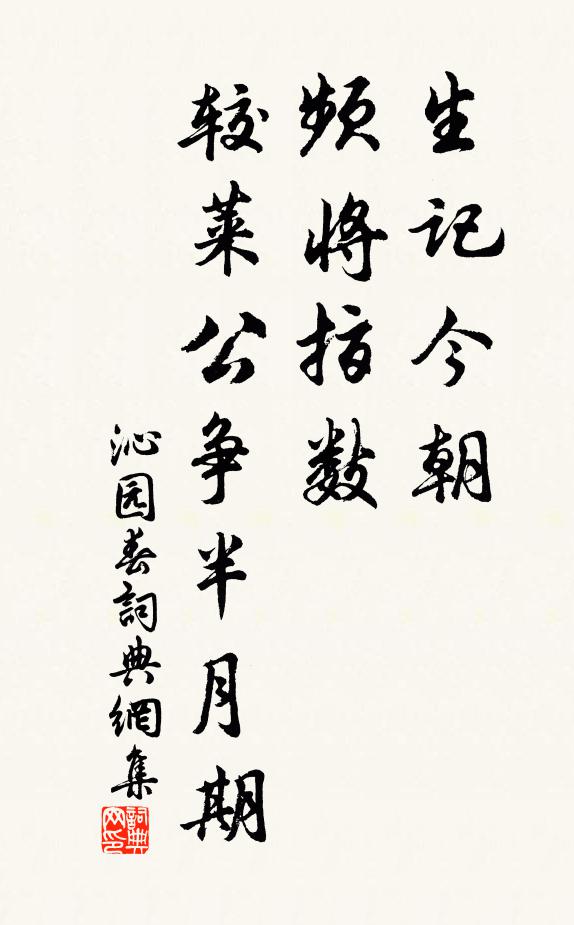 生记今朝
频将指数
较莱公争半月期
沁园春詞典網集
詞典网印